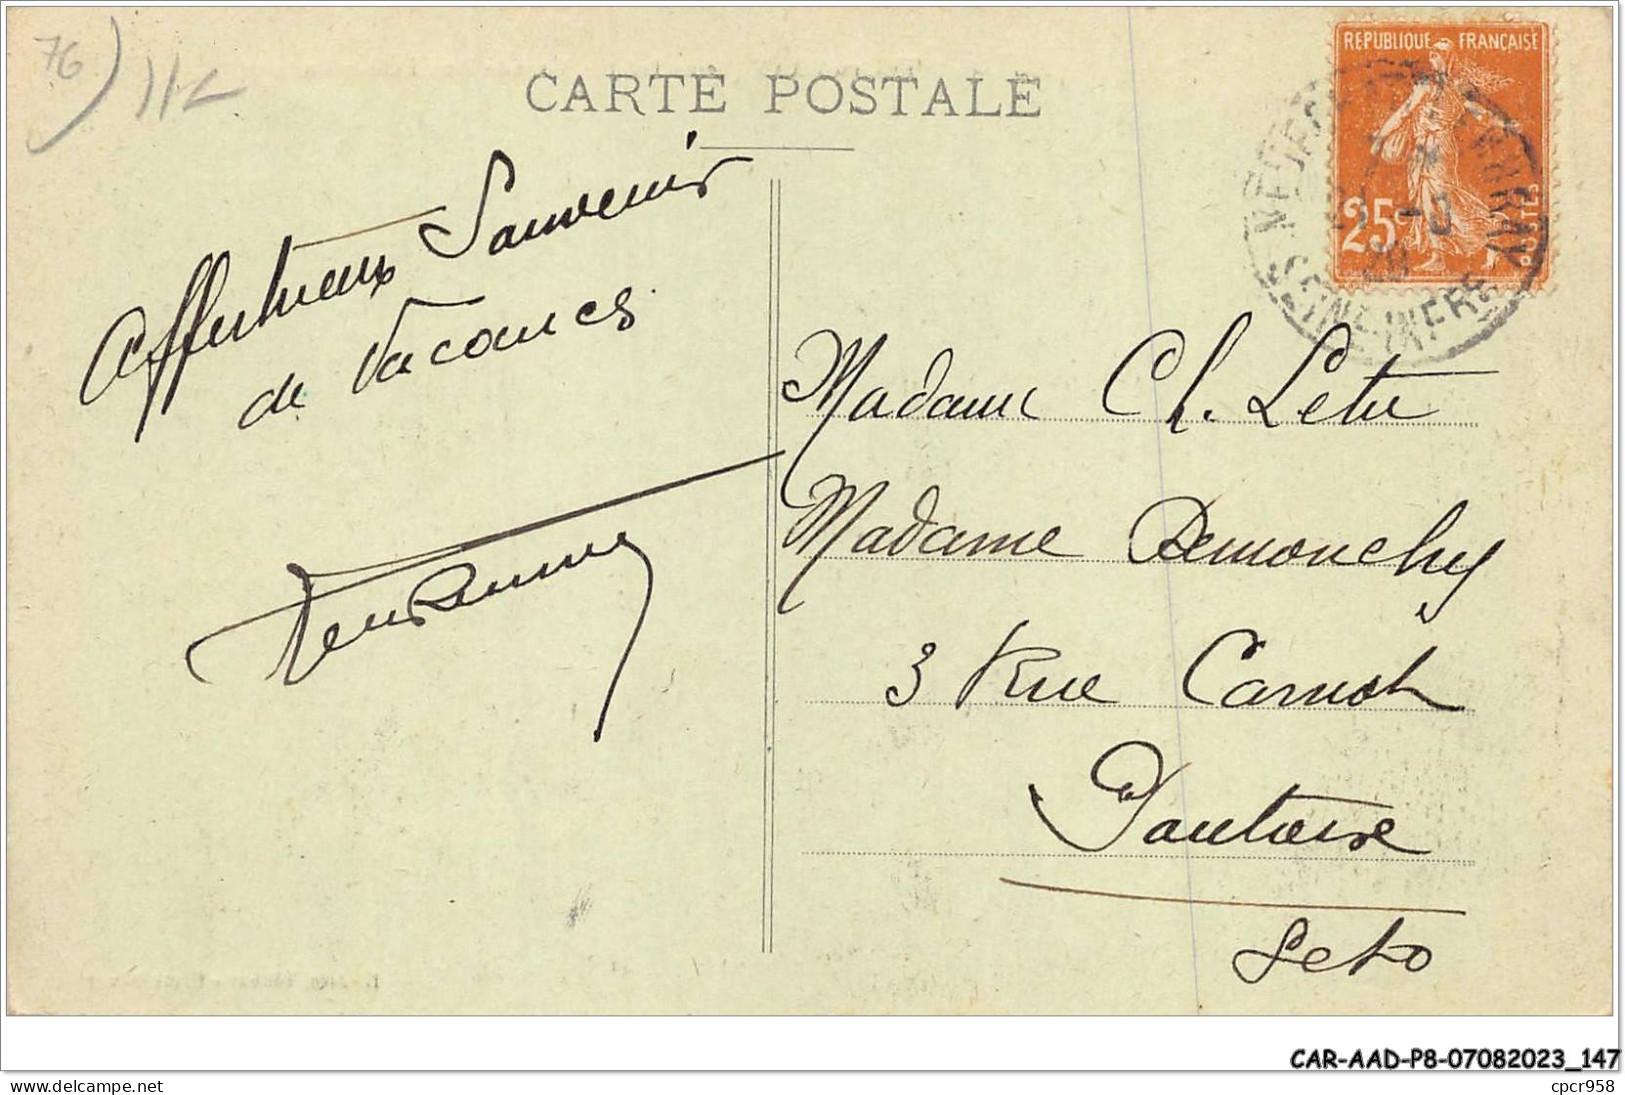 76
CARTE POSTALE
REPUBLIQUE FRANÇAISE
25c
POSTES
SEINE INFRE
Affectueux Souvenir
de Vacances
Madame Ch. Letu
Madame Demouchy
3 Rue Carnot
Pontoise
Seto
CAR-AAD-P8-07082023_147
cpcr958